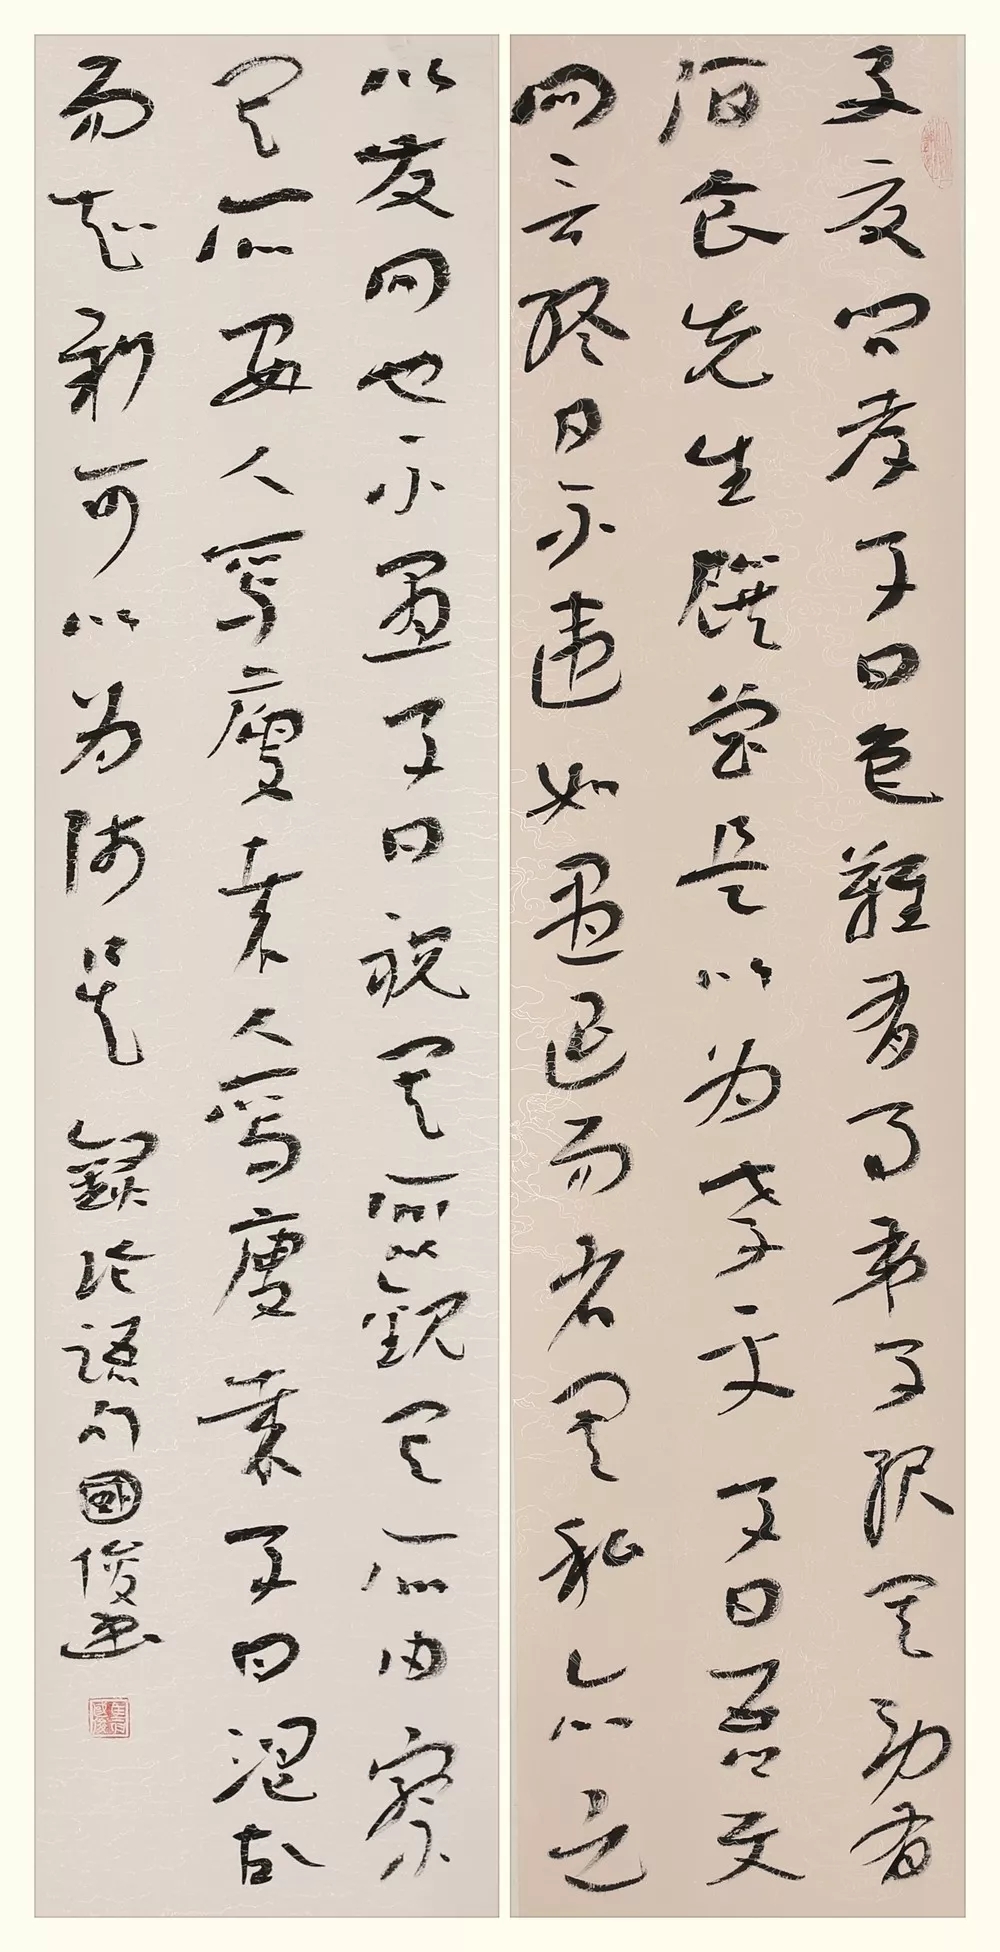 子夏問孝子曰色難有事弟子服其劳有
酒食先生饌曾是以为孝乎子曰吾与
回言終日不違如愚退而省其私亦足
以發回也不愚子曰視其所以觀其所由察
其所安人焉廋哉人焉廋哉子曰溫故
而知新可以为師矣 錄論語句國俊書